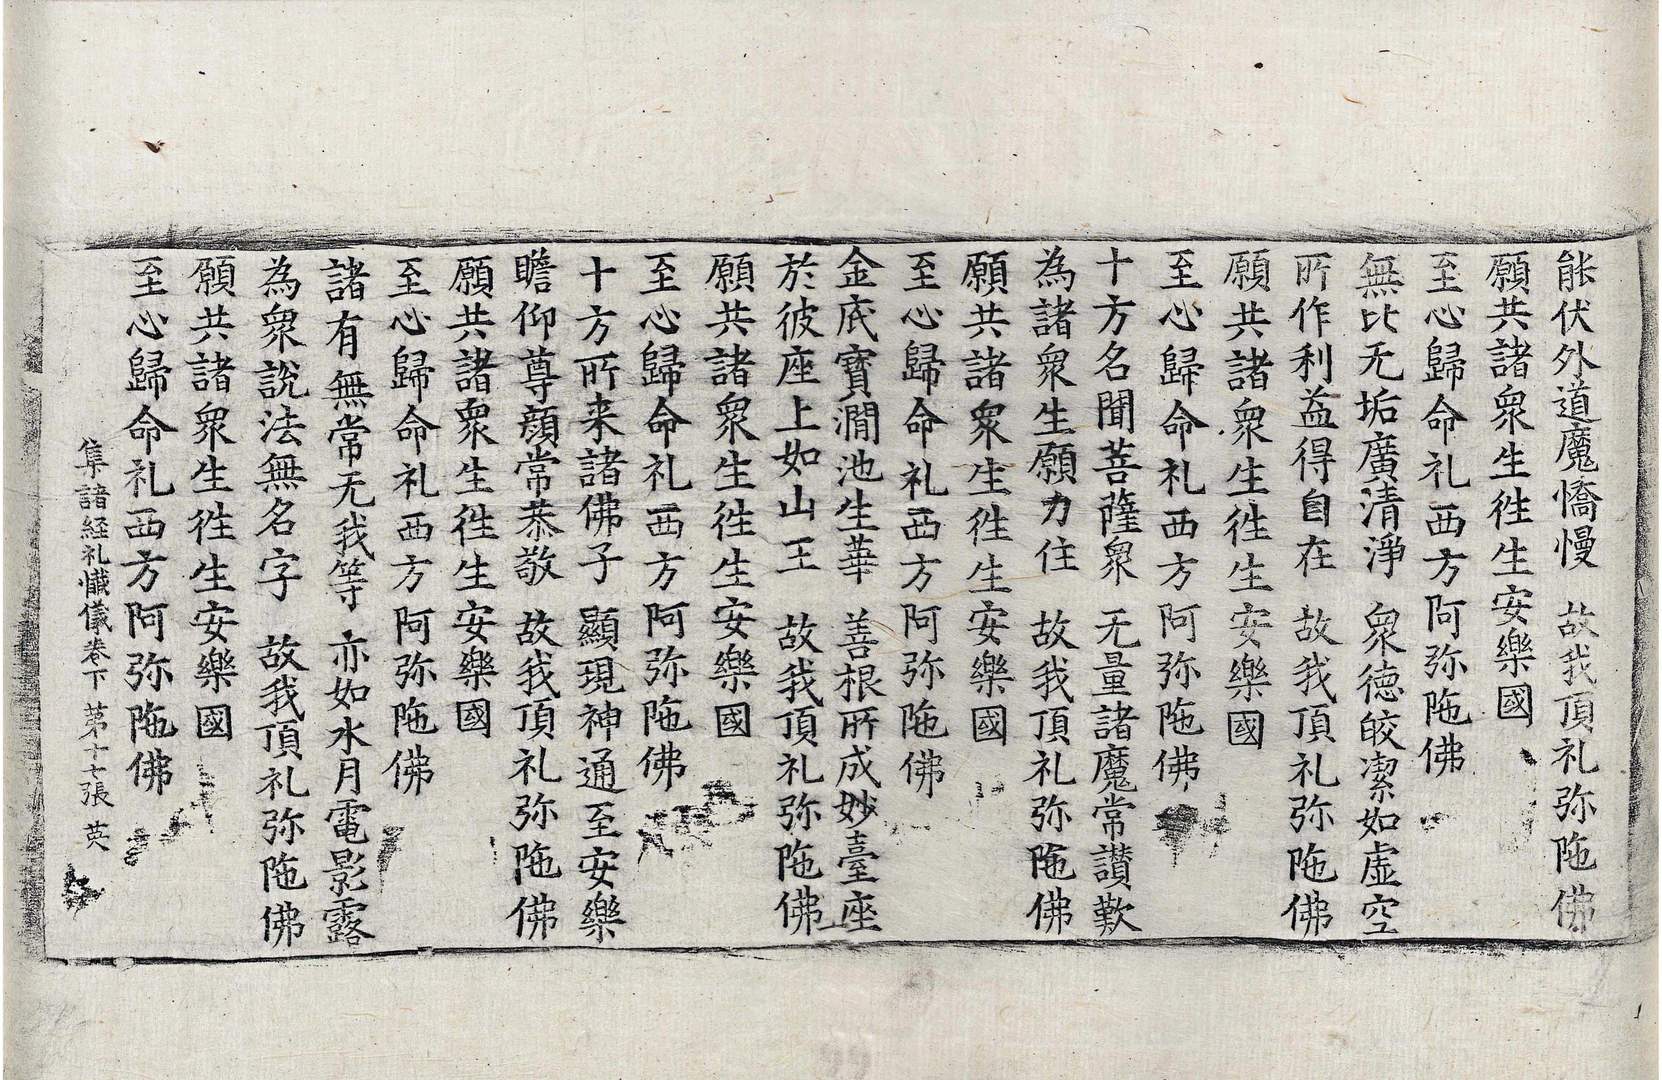 能伏外道魔憍慢　故我頂礼弥陁佛
願共諸衆生徃生安樂國
至心歸命礼西方阿弥陁佛
無比无垢廣清淨　衆徳皎潔如虚空
所作利益得自在　故我頂礼弥陁佛
願共諸衆生徃生安樂國
至心歸命礼西方阿弥陁佛
十方名聞菩薩衆　无量諸魔常讃歎
為諸衆生願力住　故我頂礼弥陁佛
願共諸衆生徃生安樂國
至心歸命礼西方阿弥陁佛
金底寳澗池生華　善根所成妙臺座
於彼座上如山王　故我頂礼弥陁佛
願共諸衆生徃生安樂國
至心歸命礼西方阿弥陁佛
十方所来諸佛子　顯現神通至安樂
瞻仰尊顔常恭敬　故我頂礼弥陁佛
願共諸衆生徃生安樂國
至心歸命礼西方阿弥陁佛
諸有無常无我等　亦如水月電影露
為衆説法無名字　故我頂礼弥陁佛
願共諸衆生徃生安樂國
至心歸命礼西方阿弥陁佛
集諸経礼懺儀卷下　第十七張　英